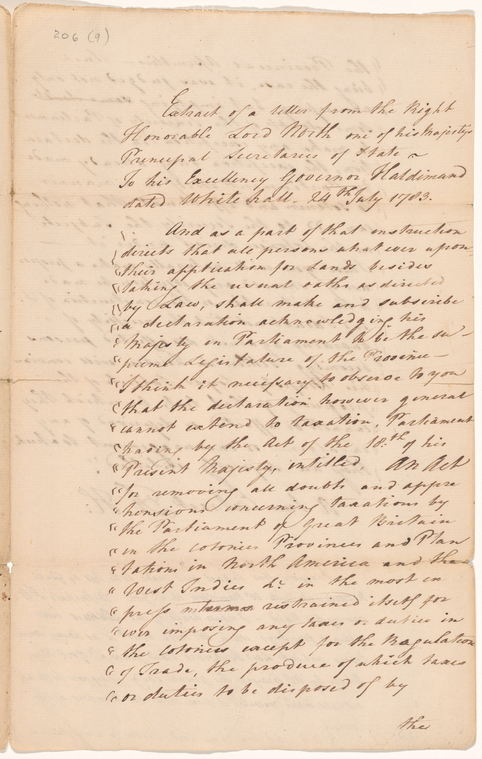 206 (9)
Extract of a letter from the Right
Honorable Lord North one of his Majesty's
Principal Secretaries of State ~
To his Excellency Governor Haldimand
dated Whitehall. 24th July 1783.
And as a part of that instruction
directs that all persons what ever upon
their application for Lands besides
taking the usual oaths as directed
by Law, shall make and subscribe
a declaration acknowledging his
Majesty in Parliament to be the su-
preme Legislature of the Province –
I think it necessary to observe to you
that the declaration however general
cannot extend to taxation, Parliament
having by the Act of the 18.th of his
Present Majesty, intitled, An Act
for removing all doubts and appre
hensions concerning taxations by
the Parliament of Great Britain
in the Colonies Provinces and Plan
tations in North America and the
West Indies &c. in the most ex
press terms restrained itself for
ever imposing any taxes or duties in
the Colonies except for the Regulation
of Trade, the produce of which taxes
or duties to be disposed of by
the